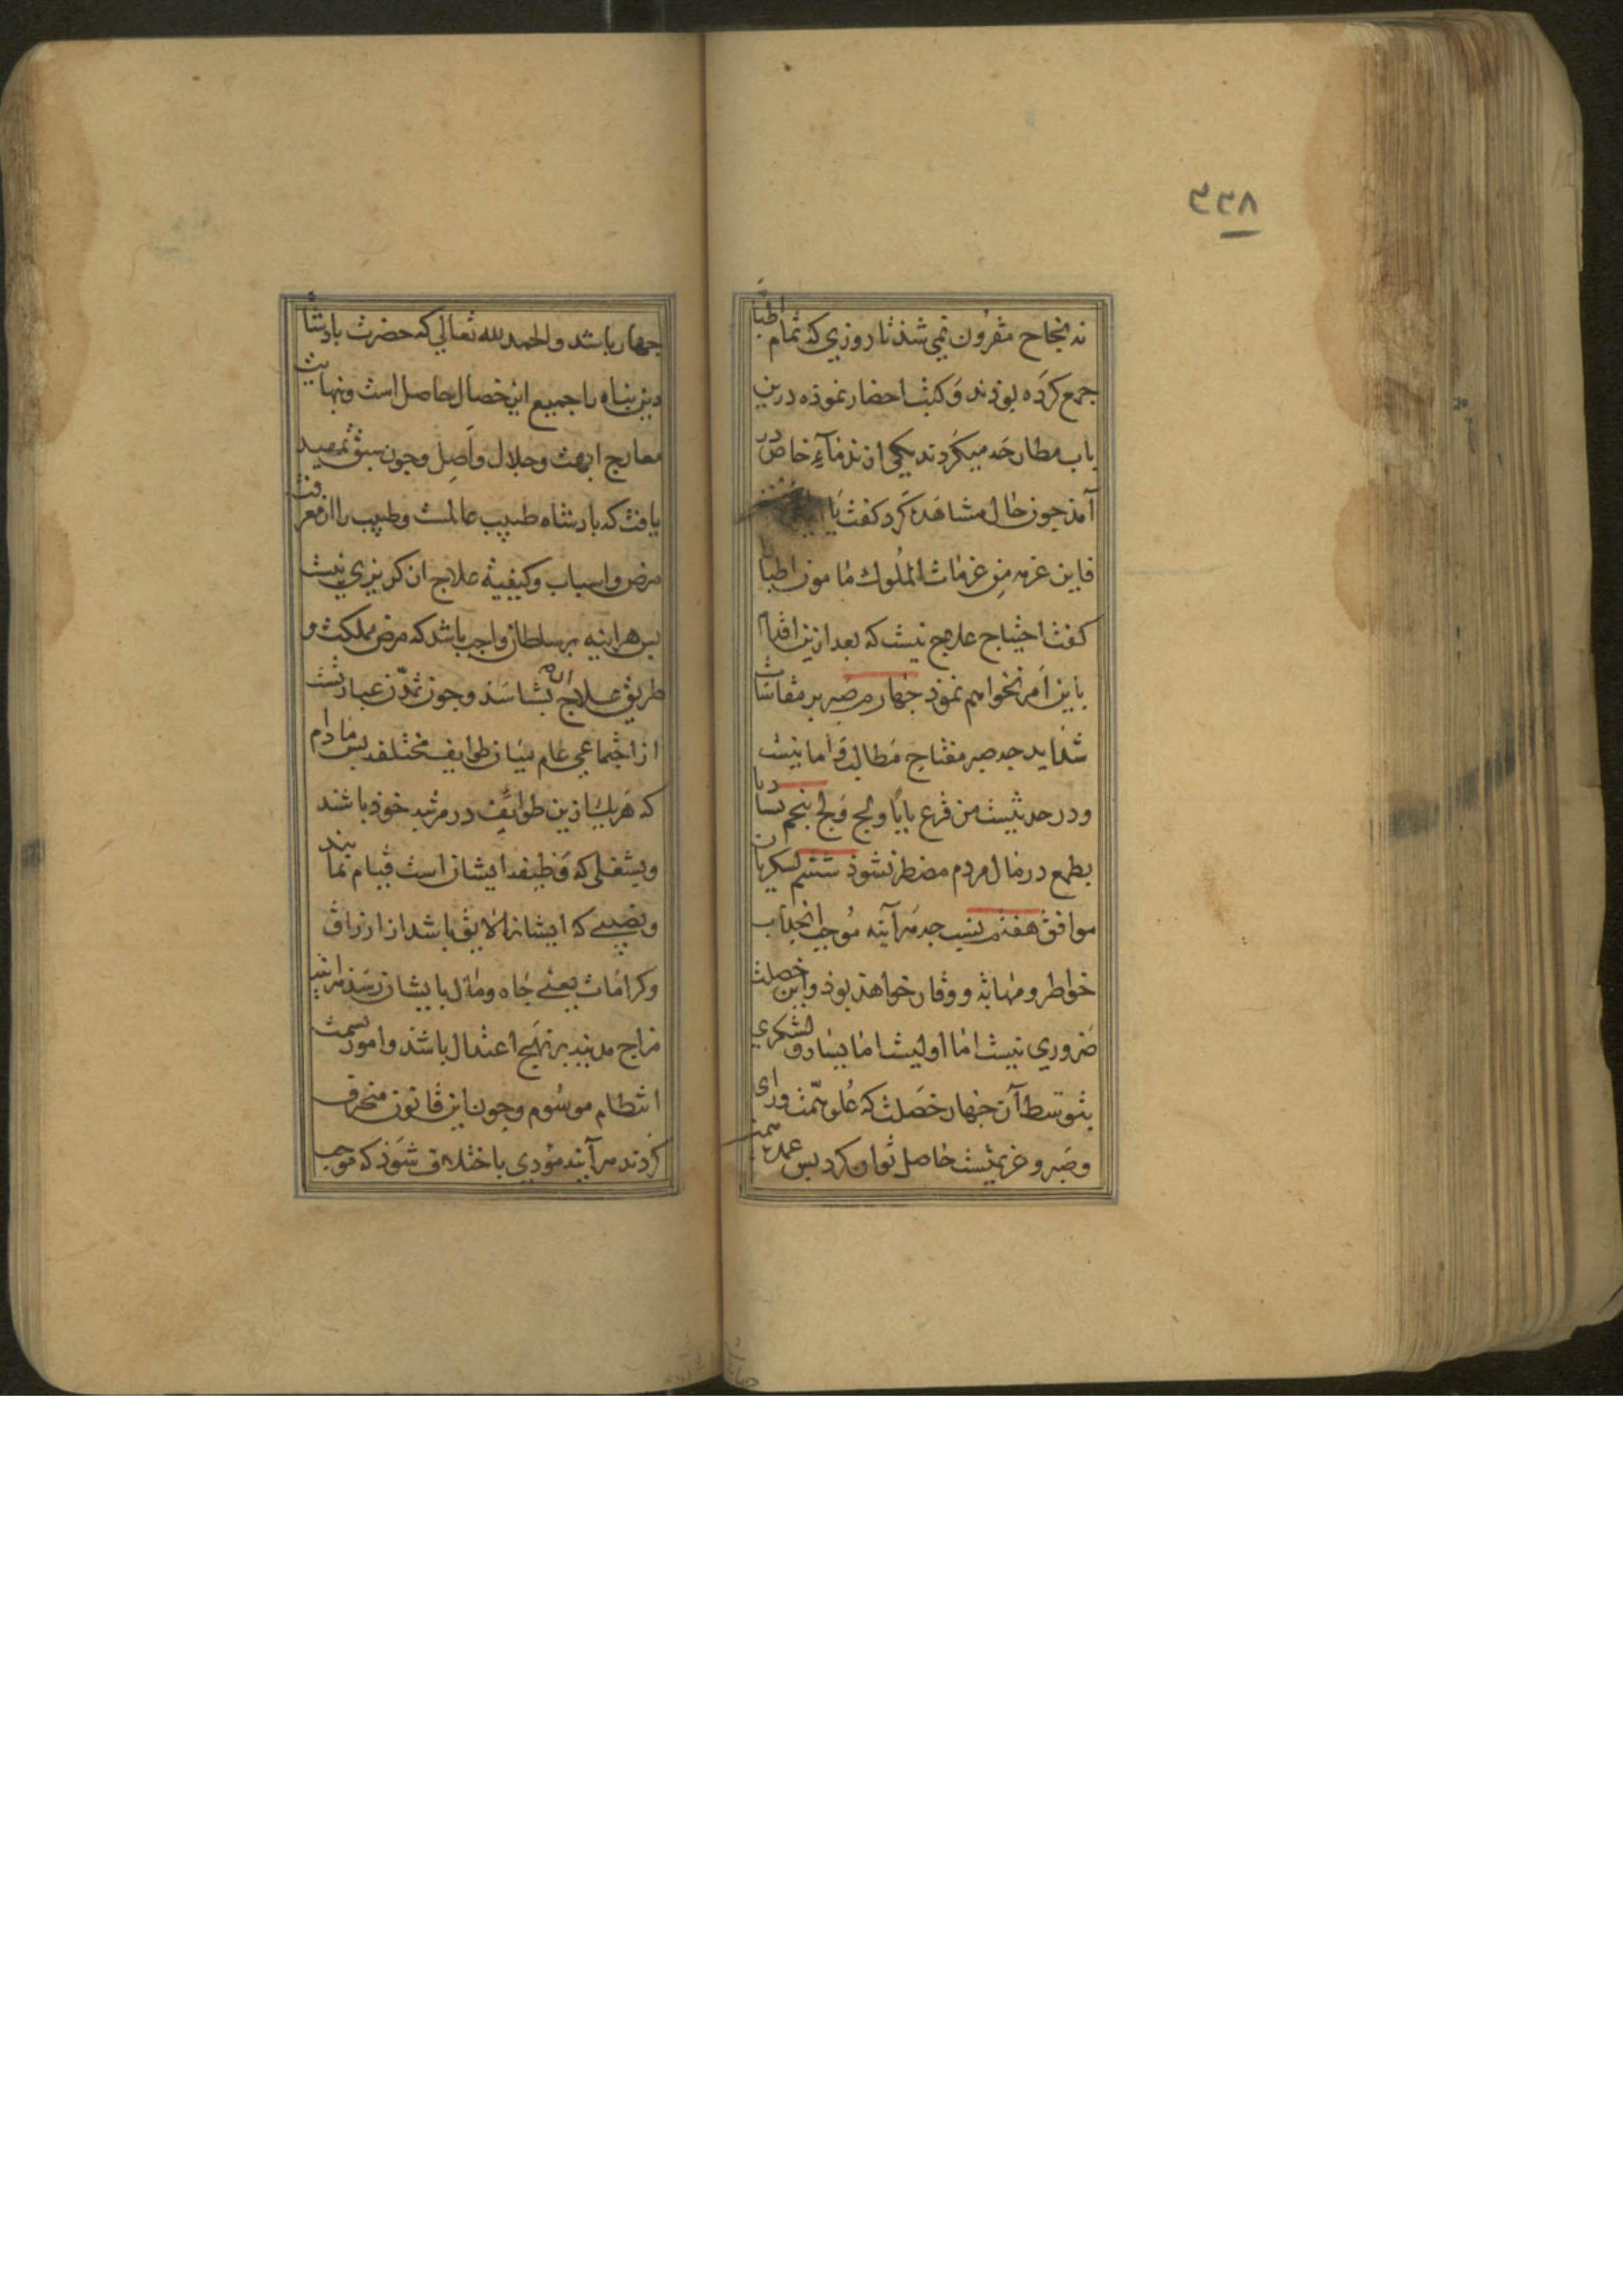 ٣٣٨
نه بنجاح مقرون نمی شذ تا روزی که تمام اطبا
جمع کرده بوذند و کتب احضار نموذه درین
باب مطارحه میکردند یکی از ندماءِ خاص در
آمذ چون حال مشاهده کرد کفت یا
فاین عزمه من عزمات الملوک مامون اطبا را
کفت احتیاج علاج نیست که بعد ازین اقدام
باین امر نخواهم نموذ جهارم صبر بر مقاسات
شداید جه صبر مفتاح مطالب و اما نیست
ودر حدیثست من قرع بابا ولج ولج بنجم یسار تا
بطمع در مال مردم مضطر نشوذ ششم لشکریان
موافق هفتم نسب جه هرآینه موجب انجذاب
خواطر ومهابة ووقار خواهذ بوذ واین خصلت
ضروری نیست اما اولیست اما یسار و لشکری
بتوسط آن جهار خصلت که علو همت ورای
وصبر وعزیمتست حاصل توان کرد بس عمده همت
جهار باشد والحمد لله تعالی که حضرت بادشاه
دین بناه را جمیع این خصال حاصل است وبنهایت
معارج ابهت وجلال واصل وجون سبق تمهید
یافت که بادشاه طبیب عالمست وطبیب را از معرفت
مرض واسباب وکیفیة علاج ان کریزی نیست
بس هراینه بر سلطان واجب باشد که مرض مملکت و
طریق علاج ان بشناسذ وجون تمدن عبارتست
از اجتماعی عام میان طوایف مختلفه بس مادام
که هریک ازین طوایف در مرتبه خوذ باشند
وبشغلی که وظیفه ایشان است قیام نمایند
ونصیبی که ایشانرا لایق باشد از ارزاق
وکرامات یعنی جاه ومال بایشان رسذ هراینه
مزاج مدینه بر نهج اعتدال باشذ وامور بسمت
انتظام موسوم وجون ازین قانون منحرف
کردند هرآینه مؤدی باختلاف شوذ که موجب